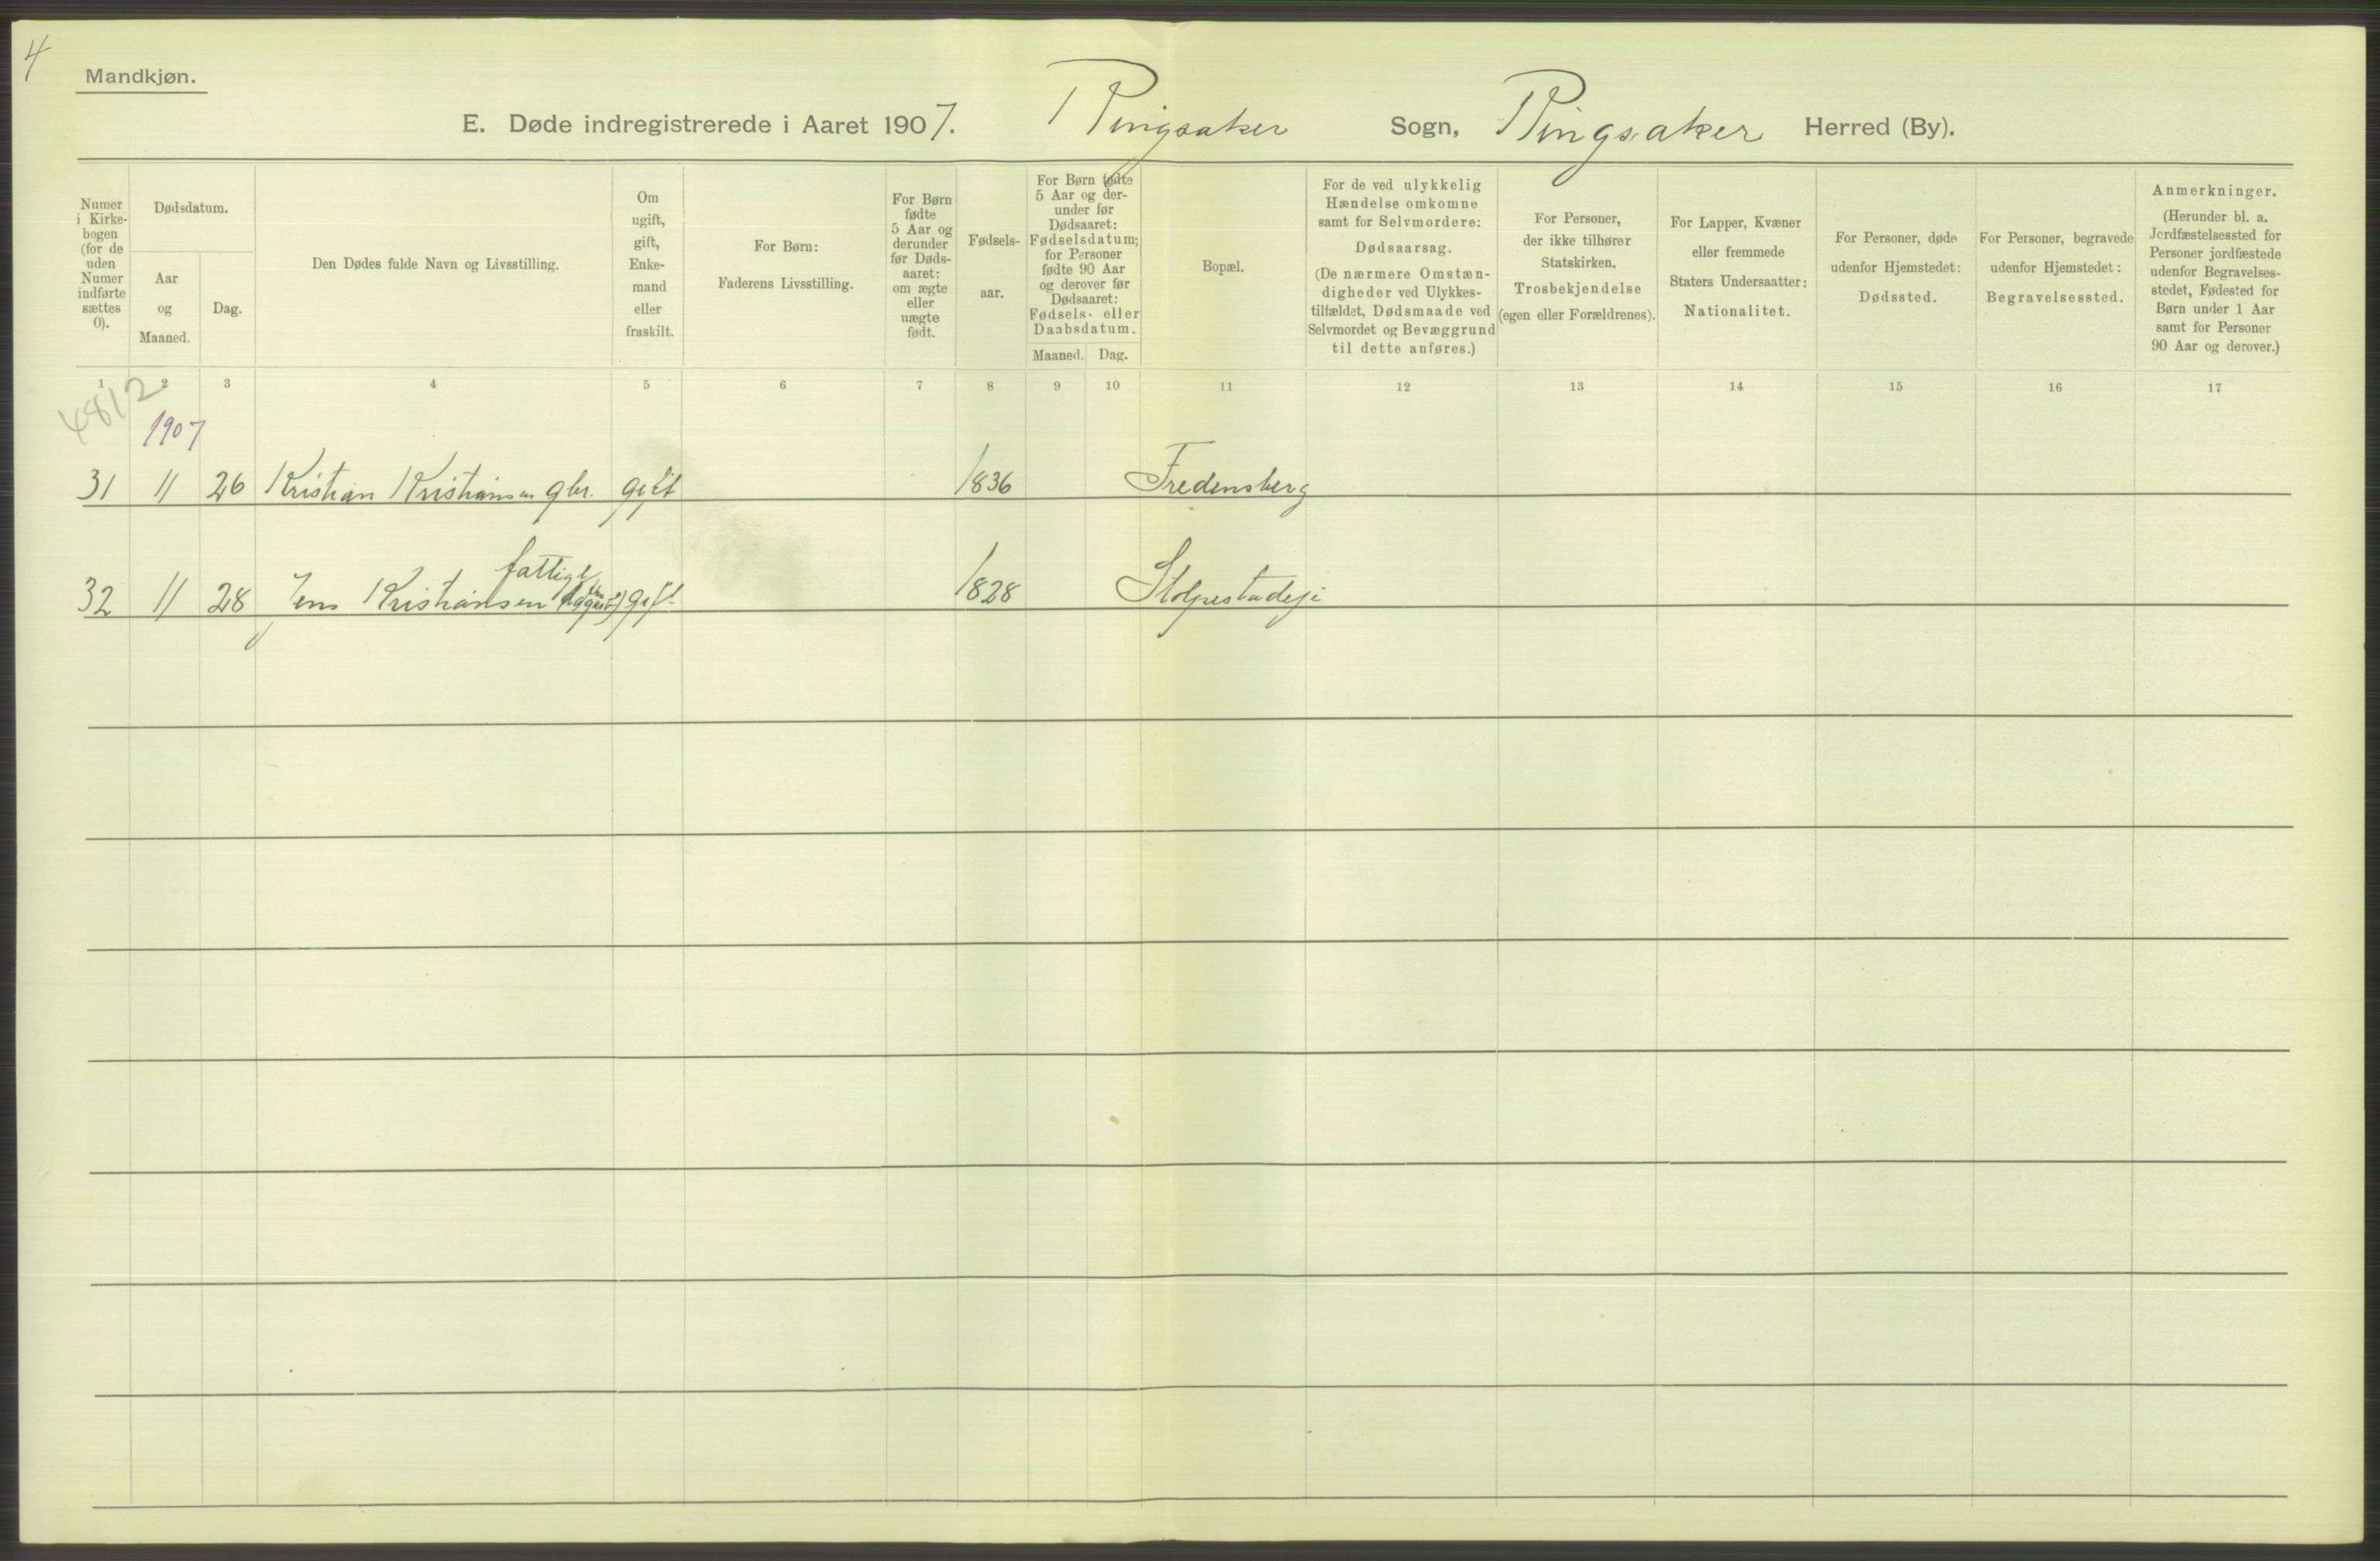 4
Mandkjøn.
E. Døde indregistrerede i Aaret 1907. Ringsaker Sogn, Ringsaker Herred (By).
Numer i Kirke- bogen (for de uden Numer indførte sættes 0).
Dødsdatum.
Aar og Maaned.
Dag.
Den Dødes fulde Navn og Livsstilling.
Om ugift, gift, Enke- mand eller fraskilt.
For Børn:
Faderens Livsstilling.
For Børn fødte 5 Aar og derunder før Døds- aaret: om ægte eller uægte født.
Fødsels- aar.
For Børn fødte 5 Aar og der- under før Dødsaaret: Fødselsdatum; for Personer fødte 90 Aar og derover før Dødsaaret: Fødsels- eller Daabsdatum.
Maaned. Dag.
Bopæl.
For de ved ulykkelig Hændelse omkomne samt for Selvmordere:
Dødsaarsag.
(De nærmere Omstæn- digheder ved Ulykkes- tilfældet, Dødsmaade ved Selvmordet og Bevæggrund til dette anføres.)
For Personer, der ikke tilhører Statskirken, Trosbekjendelse (egen eller Forældrenes).
For Lapper, Kvæner eller fremmede Staters Undersaatter: Nationalitet.
For Personer, døde udenfor Hjemstedet: Dødssted.
For Personer, begravede udenfor Hjemstedet: Begravelsessted.
Anmerkninger.
(Herunder bl. a. Jordfæstelsessted for Personer jordfæstede udenfor Begravelses- stedet, Fødested for Børn under 1 Aar samt for Personer 90 Aar og derover.)
1 2 3 4 5 6 7 8 9 10 11 12 13 14 15 16 17
4812
1907
31 11 26 Kristian Kristiansen gbr. gift 1836 Fredensberg
fattigl
32 11 28 Jens Kristiansen gift 1828 Stolpestadeje